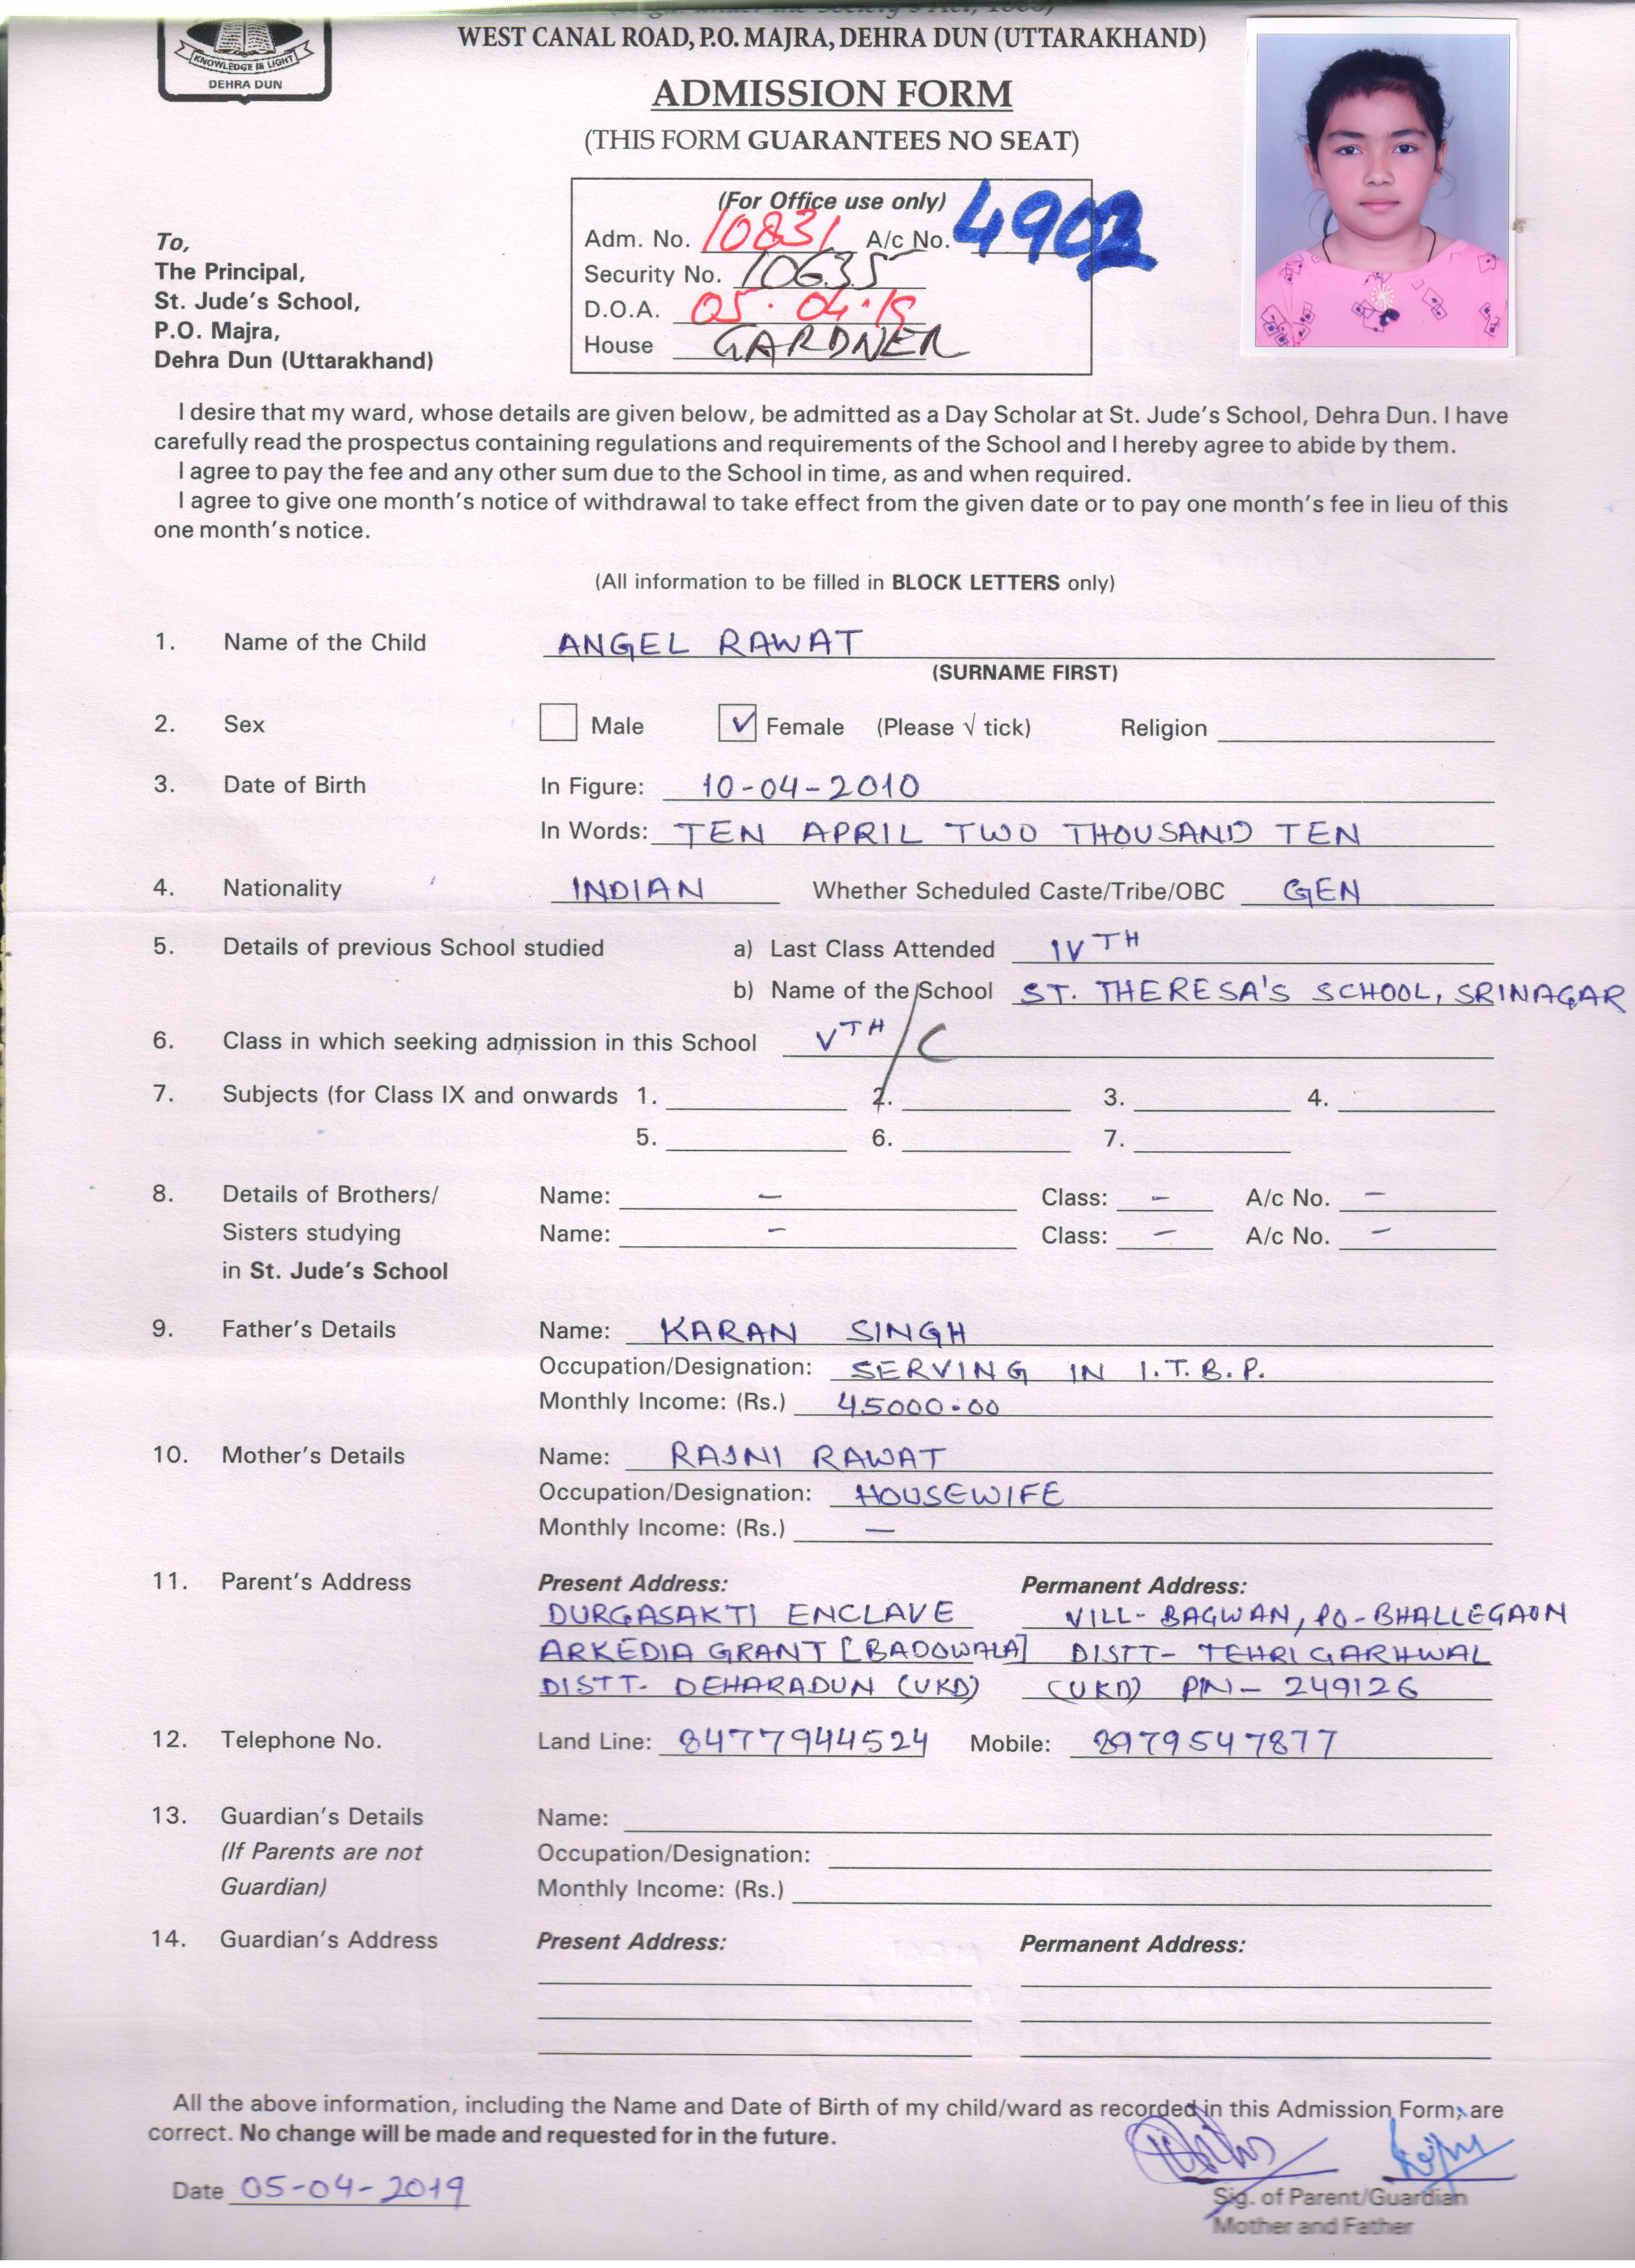 KNOWLEDGE IS LIGHT
DEHRA DUN
WEST CANAL ROAD, P.O. MAJRA, DEHRA DUN (UTTARAKHAND)
ADMISSION FORM
(THIS FORM GUARANTEES NO SEAT)
(For Office use only)
Adm. No. 10831 A/c No. 4902
Security No. 10635
D.O.A. 05.04.19
House GARDNER
To,
The Principal,
St. Jude's School,
P.O. Majra,
Dehra Dun (Uttarakhand)
I desire that my ward, whose details are given below, be admitted as a Day Scholar at St. Jude's School, Dehra Dun. I have
carefully read the prospectus containing regulations and requirements of the School and I hereby agree to abide by them.
I agree to pay the fee and any other sum due to the School in time, as and when required.
I agree to give one month's notice of withdrawal to take effect from the given date or to pay one month's fee in lieu of this
one month's notice.
(All information to be filled in BLOCK LETTERS only)
1. Name of the Child ANGEL RAWAT
(SURNAME FIRST)
2. Sex Male ✓ Female (Please √ tick) Religion
3. Date of Birth In Figure: 10-04-2010
In Words: TEN APRIL TWO THOUSAND TEN
4. Nationality INDIAN Whether Scheduled Caste/Tribe/OBC GEN
5. Details of previous School studied a) Last Class Attended IVTH
b) Name of the School ST. THERESA'S SCHOOL, SRINAGAR
6. Class in which seeking admission in this School VTH / C
7. Subjects (for Class IX and onwards 1. 2. 3. 4.
5. 6. 7.
8. Details of Brothers/ Name: – Class: – A/c No. –
Sisters studying Name: – Class: – A/c No. –
in St. Jude's School
9. Father's Details Name: KARAN SINGH
Occupation/Designation: SERVING IN I.T.B.P.
Monthly Income: (Rs.) 45000.00
10. Mother's Details Name: RAJNI RAWAT
Occupation/Designation: HOUSEWIFE
Monthly Income: (Rs.) –
11. Parent's Address Present Address: Permanent Address:
DURGASAKTI ENCLAVE VILL- BAGWAN, PO-BHALLEGAON
ARKEDIA GRANT [BADOWALA] DISTT- TEHRI GARHWAL
DISTT- DEHARADUN (UKD) (UKD) PIN- 249126
12. Telephone No. Land Line: 8477944524 Mobile: 8979547877
13. Guardian's Details Name:
(If Parents are not Occupation/Designation:
Guardian) Monthly Income: (Rs.)
14. Guardian's Address Present Address: Permanent Address:
All the above information, including the Name and Date of Birth of my child/ward as recorded in this Admission Form, are
correct. No change will be made and requested for in the future.
Date 05-04-2019
Sig. of Parent/Guardian
Mother and Father